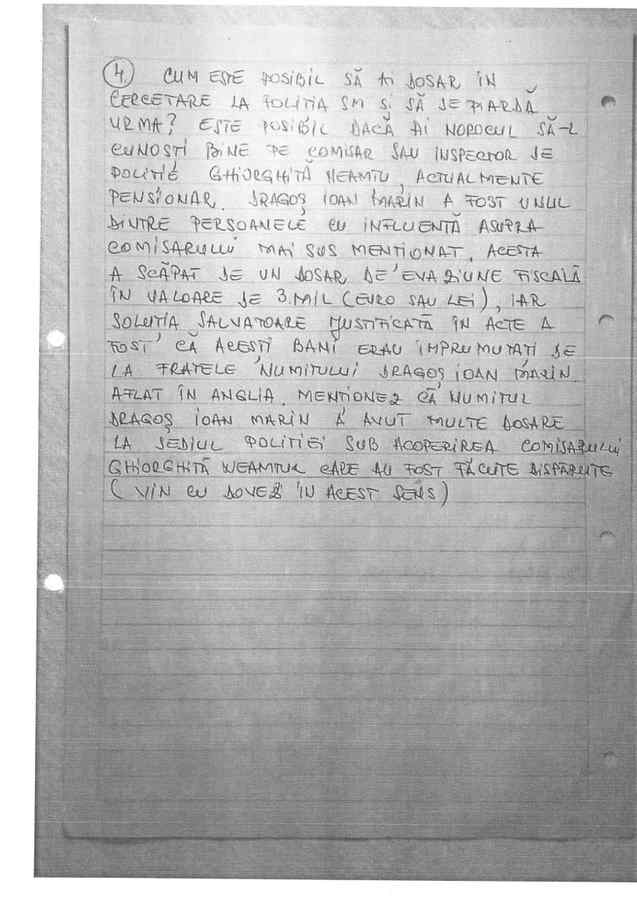 4. CUM ESTE POSIBIL SĂ AI DOSAR ÎN
CERCETARE LA POLITIA SM SI SĂ SE PIARDĂ
URMA? ESTE POSIBIL DACĂ AI NOROCUL SĂ-L
CUNOSTI BINE PE COMISAR SAU INSPECTOR DE
POLITIE GHIORGHITĂ NEAMTU, ACTUALMENTE
PENSIONAR. DRAGOȘ IOAN MARIN A FOST UNUL
DINTRE PERSOANELE CU INFLUENTĂ ASUPRA
COMISARULUI MAI SUS MENTIONAT, ACESTA
A SCĂPAT DE UN DOSAR DE EVAZIUNE FISCALĂ
ÎN VALOARE DE 3.MIL (EURO SAU LEI), IAR
SOLUTIA SALVATOARE JUSTIFICATĂ ÎN ACTE A
FOST CĂ ACESTI BANI ERAU IMPRUMUTATI DE
LA FRATELE NUMITULUI DRAGOȘ IOAN MARIN
AFLAT ÎN ANGLIA. MENTIONEZ CĂ NUMITUL
DRAGOȘ IOAN MARIN A AVUT MULTE DOSARE
LA SEDIUL POLITIEI SUB ACOPERIREA COMISARULUI
GHIORGHITĂ NEAMTUL CARE AU FOST FĂCUTE DISPĂRUTE
(VIN CU DOVEZI IN ACEST SENS)